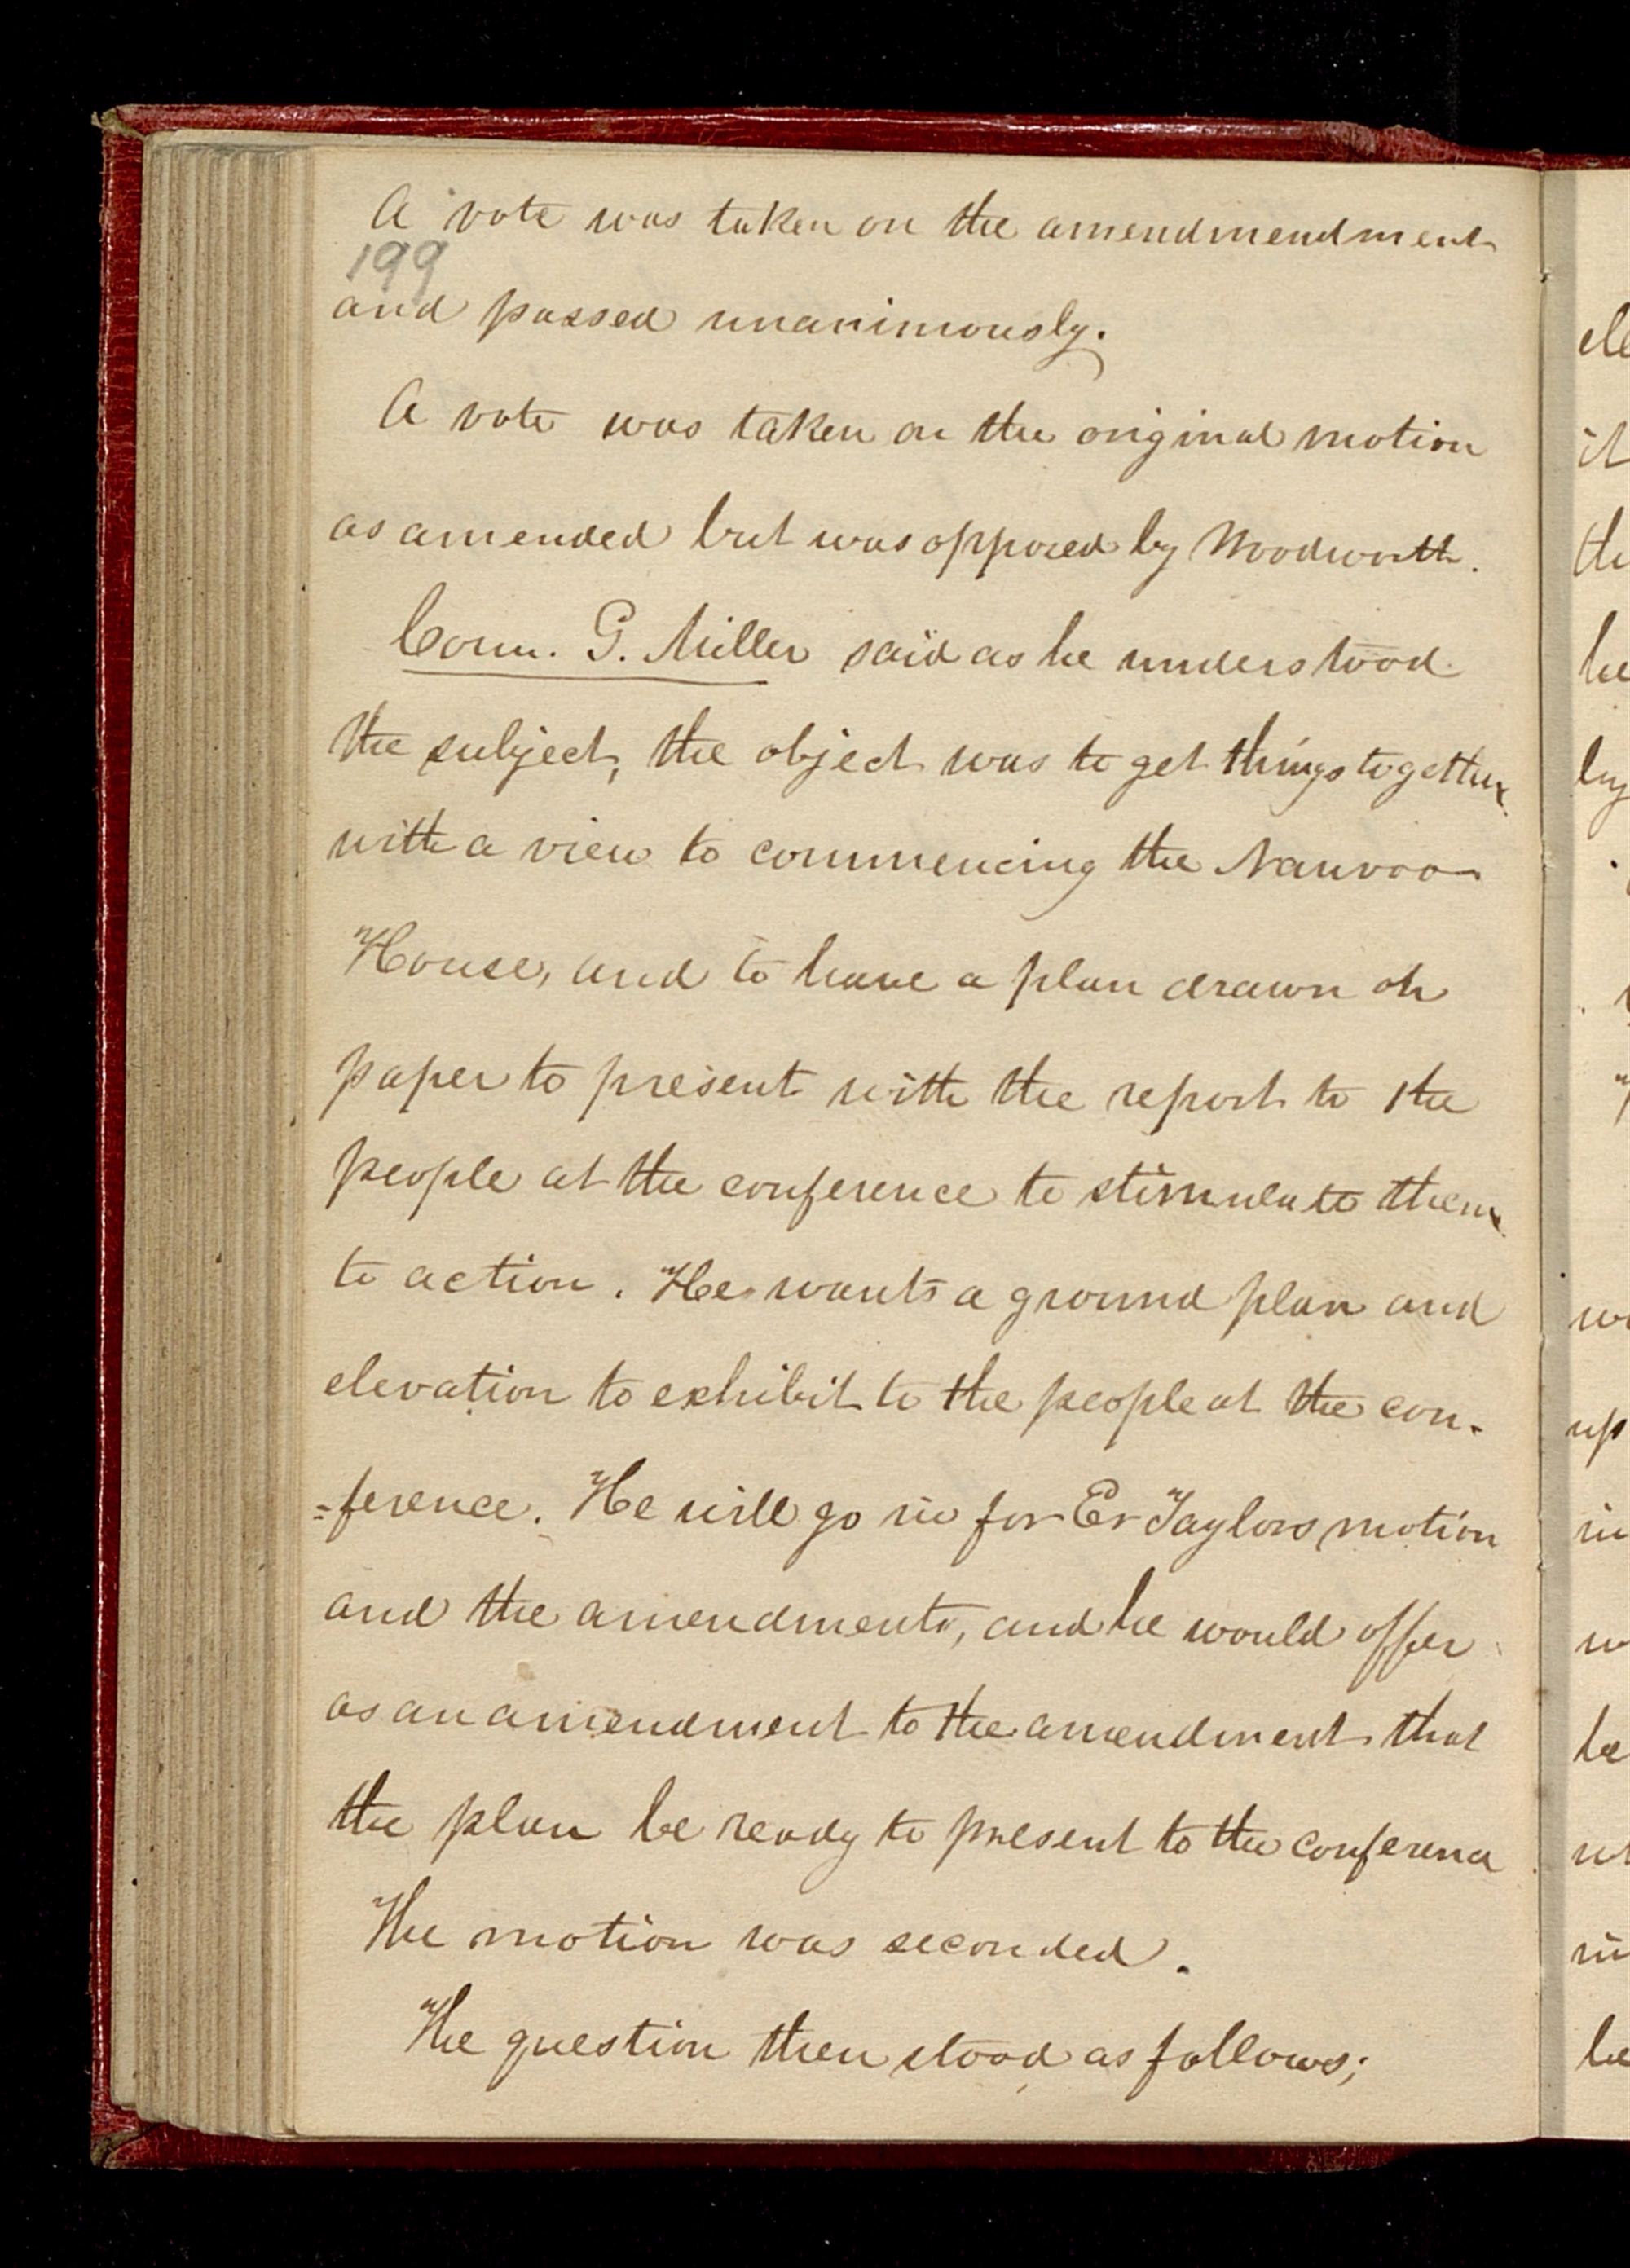 A vote was taken on the amendmendment
199
and passed unanimously.
A vote was taken on the original motion
as amended but was opposed by Woodworth.
Coun. G. Miller said as he understood
the subject, the object was to get things together
with a view to commencing the Nauvoo
House, and to have a plan drawn on
paper to present with the report to the
people at the conference to stimulate them
to action. He wants a ground plan and
elevation to exhibit to the people at the con-
=ference. He will go in for Er Taylors motion
and the amendments, and he would offer
as an amendment to the amendment that
the plan be ready to present to the conference
The motion was seconded.
The question then stood as follows;
ele
it
the
he
by
wi
up
in
w
be
wh
in
he